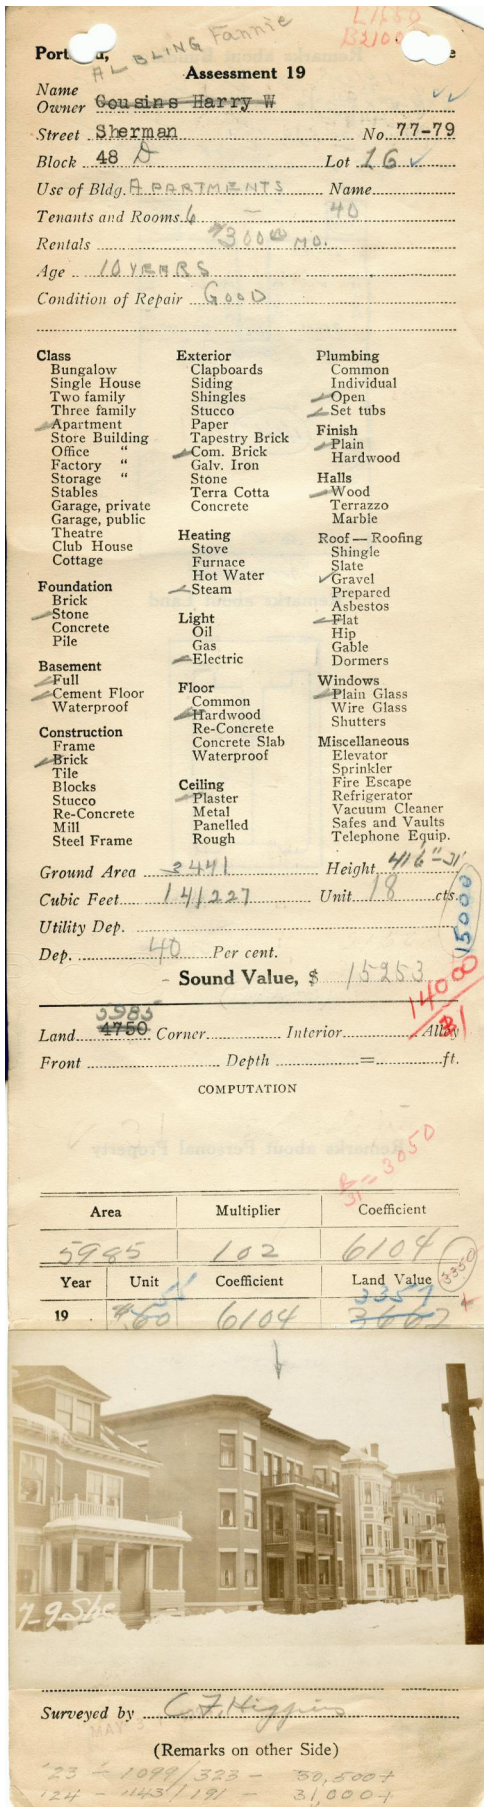 L1550
B2100
AL BLING Fannie
Portland, e
Assessment 19
Name
Owner Cousins Harry W
Street Sherman No. 77-79
Block 48 D Lot 16
Use of Bldg. APARTMENTS Name
Tenants and Rooms 6 — 40
Rentals $300 00 MO.
Age 10 YEARS
Condition of Repair GOOD
Class
Bungalow
Single House
Two family
Three family
Apartment
Store Building
Office "
Factory "
Storage "
Stables
Garage, private
Garage, public
Theatre
Club House
Cottage
Foundation
Brick
Stone
Concrete
Pile
Basement
Full
Cement Floor
Waterproof
Construction
Frame
Brick
Tile
Blocks
Stucco
Re-Concrete
Mill
Steel Frame
Exterior
Clapboards
Siding
Shingles
Stucco
Paper
Tapestry Brick
Com. Brick
Galv. Iron
Stone
Terra Cotta
Concrete
Heating
Stove
Furnace
Hot Water
Steam
Light
Oil
Gas
Electric
Floor
Common
Hardwood
Re-Concrete
Concrete Slab
Waterproof
Ceiling
Plaster
Metal
Panelled
Rough
Plumbing
Common
Individual
Open
Set tubs
Finish
Plain
Hardwood
Halls
Wood
Terrazzo
Marble
Roof — Roofing
Shingle
Slate
Gravel
Prepared
Asbestos
Flat
Hip
Gable
Dormers
Windows
Plain Glass
Wire Glass
Shutters
Miscellaneous
Elevator
Sprinkler
Fire Escape
Refrigerator
Vacuum Cleaner
Safes and Vaults
Telephone Equip.
Ground Area 3441 Height 41'6"-31'
Cubic Feet 141227 Unit 18 cts.
15000
Utility Dep.
Dep. 40 Per cent.
Sound Value, $ 15253
14000
31
5985
Land 4750 Corner Interior Alley
Front Depth = ft.
COMPUTATION
B
31 = 3050
Area Multiplier Coefficient
5985 102 6104
Year Unit Coefficient Land Value 3350
55 3357
19 $60 6104 3662
7-9 She
Surveyed by C. F. Higgins
MAY
(Remarks on other Side)
'23 - 1099/323 - 30,500+
'24 - 1143/191 - 31,000+